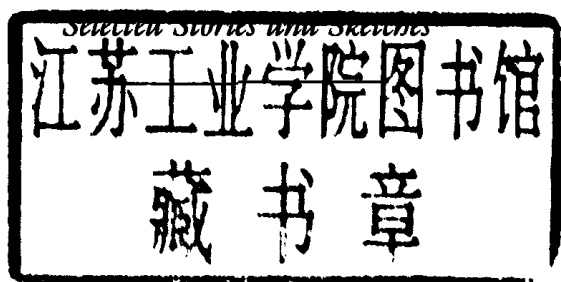 Selected Stories and Sketches
江苏工业学院图书馆
藏书章